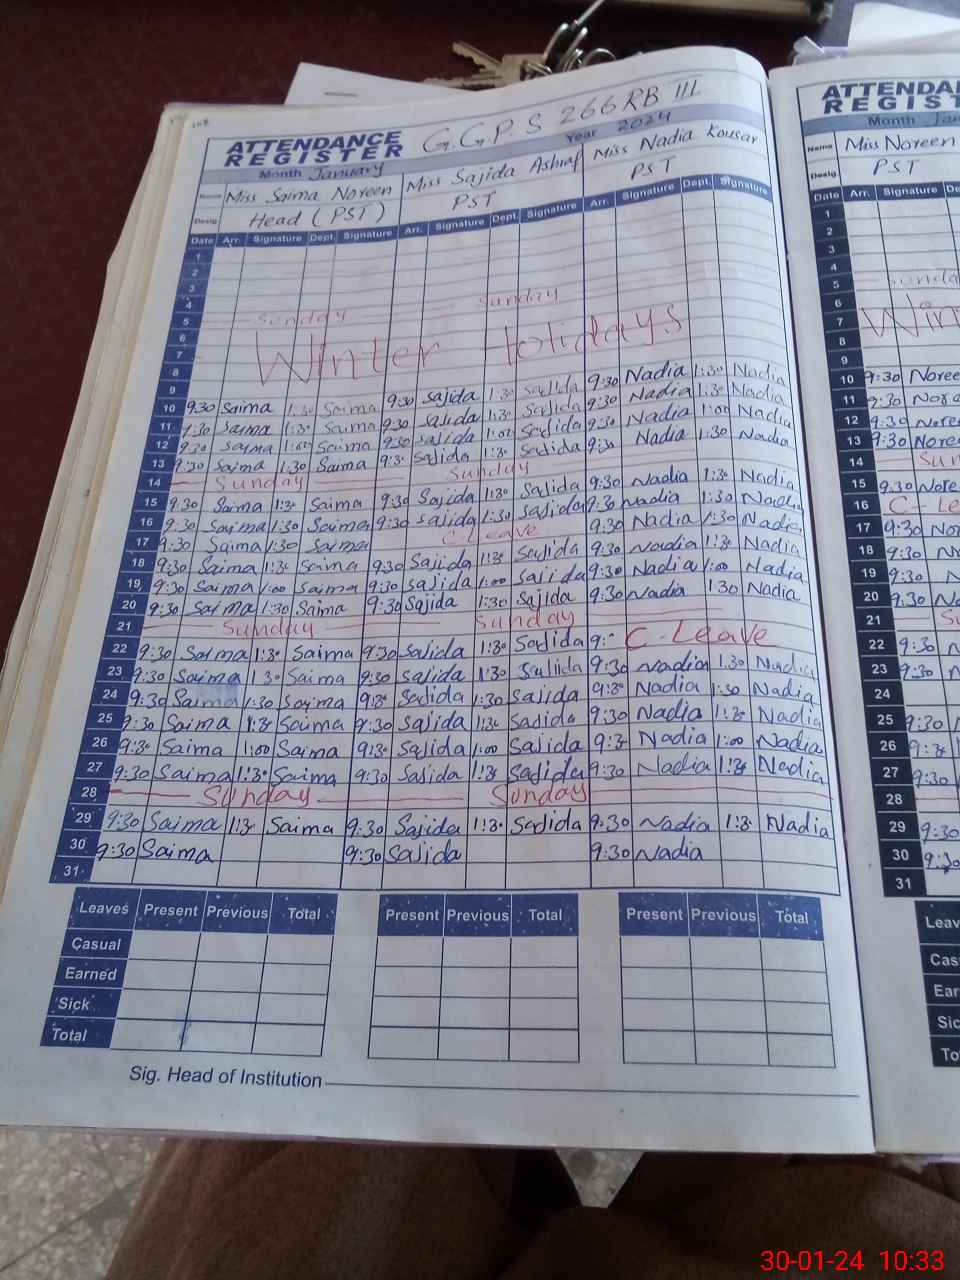 ATTENDANCE REGISTER G.G.P.S 266 RB III
Month January Year 2024
Name Miss Saima Noreen Miss Sajida Ashraf Miss Nadia Kousar
Desig Head (PST) PST PST
Date Arr. Signature Dept. Signature Arr. Signature Dept. Signature Arr. Signature Dept. Signature
1
2
3
4
5 Sunday Sunday
6
7 Winter Holidays
8
9
10 9:30 Saima 1:30 Saima 9:30 Sajida 1:30 Sajida 9:30 Nadia 1:30 Nadia
11 9:30 Saima 1:30 Saima 9:30 Sajida 1:30 Sajida 9:30 Nadia 1:30 Nadia
12 9:30 Saima 1:00 Saima 9:30 Sajida 1:00 Sajida 9:30 Nadia 1:00 Nadia
13 9:30 Saima 1:30 Saima 9:30 Sajida 1:30 Sajida 9:30 Nadia 1:30 Nadia
14 Sunday Sunday
15 9:30 Saima 1:30 Saima 9:30 Sajida 1:30 Sajida 9:30 Nadia 1:30 Nadia
16 9:30 Saima 1:30 Saima 9:30 Sajida 1:30 Sajida 9:30 Nadia 1:30 Nadia
17 9:30 Saima 1:30 Saima C-Leave 9:30 Nadia 1:30 Nadia
18 9:30 Saima 1:30 Saima 9:30 Sajida 1:30 Sajida 9:30 Nadia 1:30 Nadia
19 9:30 Saima 1:00 Saima 9:30 Sajida 1:00 Sajida 9:30 Nadia 1:00 Nadia
20 9:30 Saima 1:30 Saima 9:30 Sajida 1:30 Sajida 9:30 Nadia 1:30 Nadia
21 Sunday Sunday
22 9:30 Saima 1:30 Saima 9:30 Sajida 1:30 Sajida 9:- C-Leave
23 9:30 Saima 1:30 Saima 9:30 Sajida 1:30 Sajida 9:30 Nadia 1:30 Nadia
24 9:30 Saima 1:30 Saima 9:30 Sajida 1:30 Sajida 9:30 Nadia 1:30 Nadia
25 9:30 Saima 1:30 Saima 9:30 Sajida 1:30 Sajida 9:30 Nadia 1:30 Nadia
26 9:30 Saima 1:00 Saima 9:30 Sajida 1:00 Sajida 9:30 Nadia 1:00 Nadia
27 9:30 Saima 1:30 Saima 9:30 Sajida 1:30 Sajida 9:30 Nadia 1:30 Nadia
28 Sunday Sunday
29 9:30 Saima 1:30 Saima 9:30 Sajida 1:30 Sajida 9:30 Nadia 1:30 Nadia
30 9:30 Saima 9:30 Sajida 9:30 Nadia
31
Leaves Present Previous Total Present Previous Total Present Previous Total
Casual
Earned
Sick
Total
Sig. Head of Institution
Month
Name Miss Noreen
Desig. PST
Date Arr. Signature
1
2
3
4
5
6
7
8
9
10 9:30
11 9:30
12 9:30
13 9:30
14
15 9:30
16
17 9:30
18 9:30
19 9:30
20 9:30
21
22 9:30
23 9:30
24
25 9:30
26
27 9:30
28
29 9:30
30 9:30
31
30-01-24 10:33